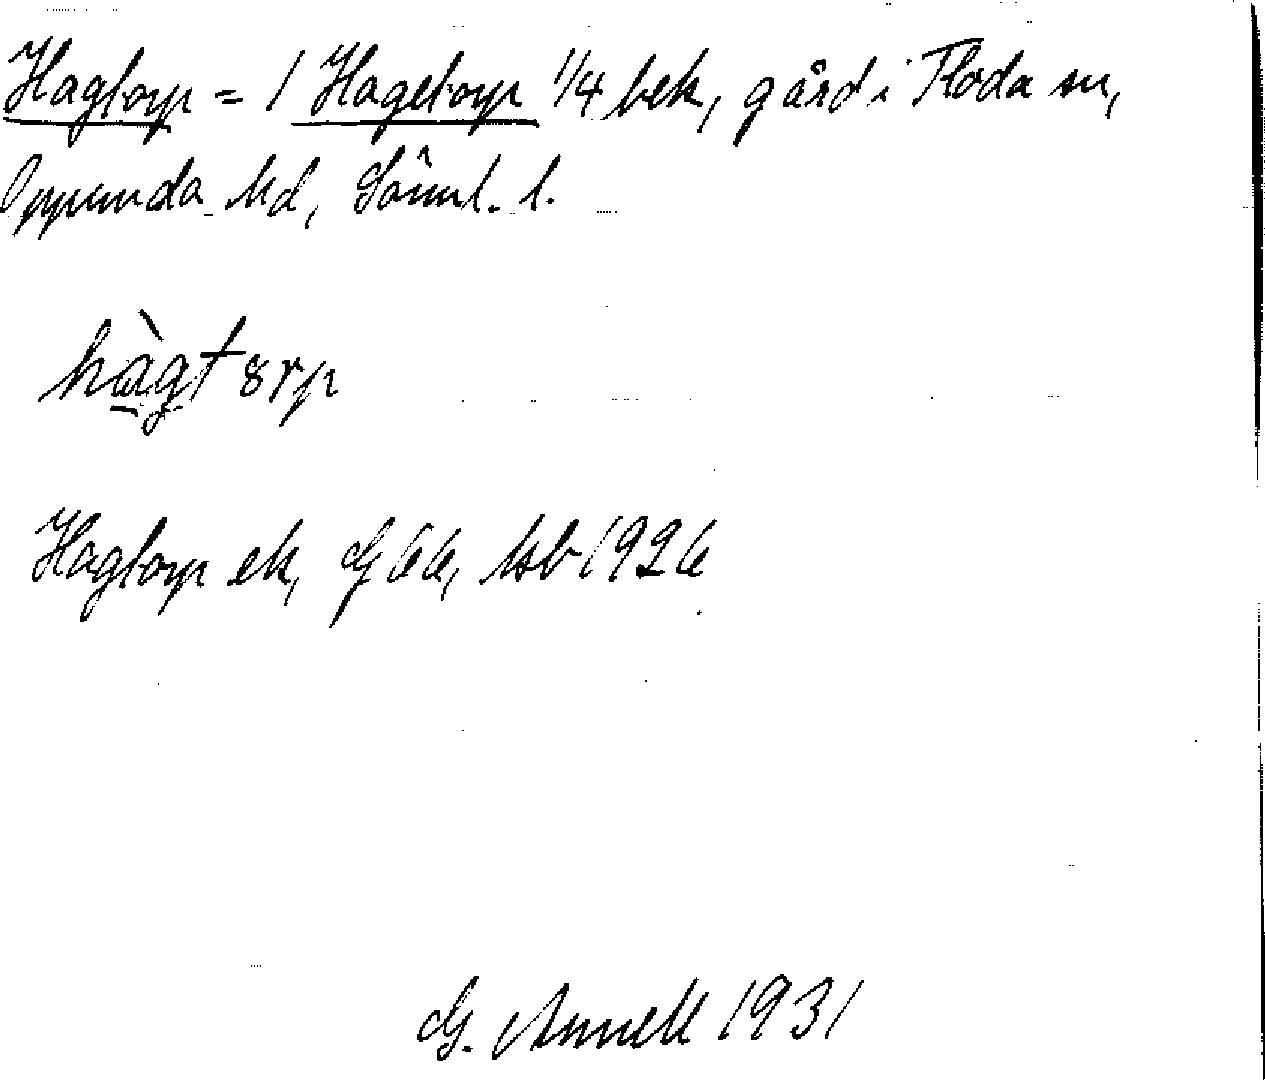 Hagtorp = / Hagetorp 1/4 bek, gård i Floda sn,
Oppunda hd, Sörml. l.
hàgtɜrp
Hagtorp ek, G 66, hsb 1926
G. Annell 1931